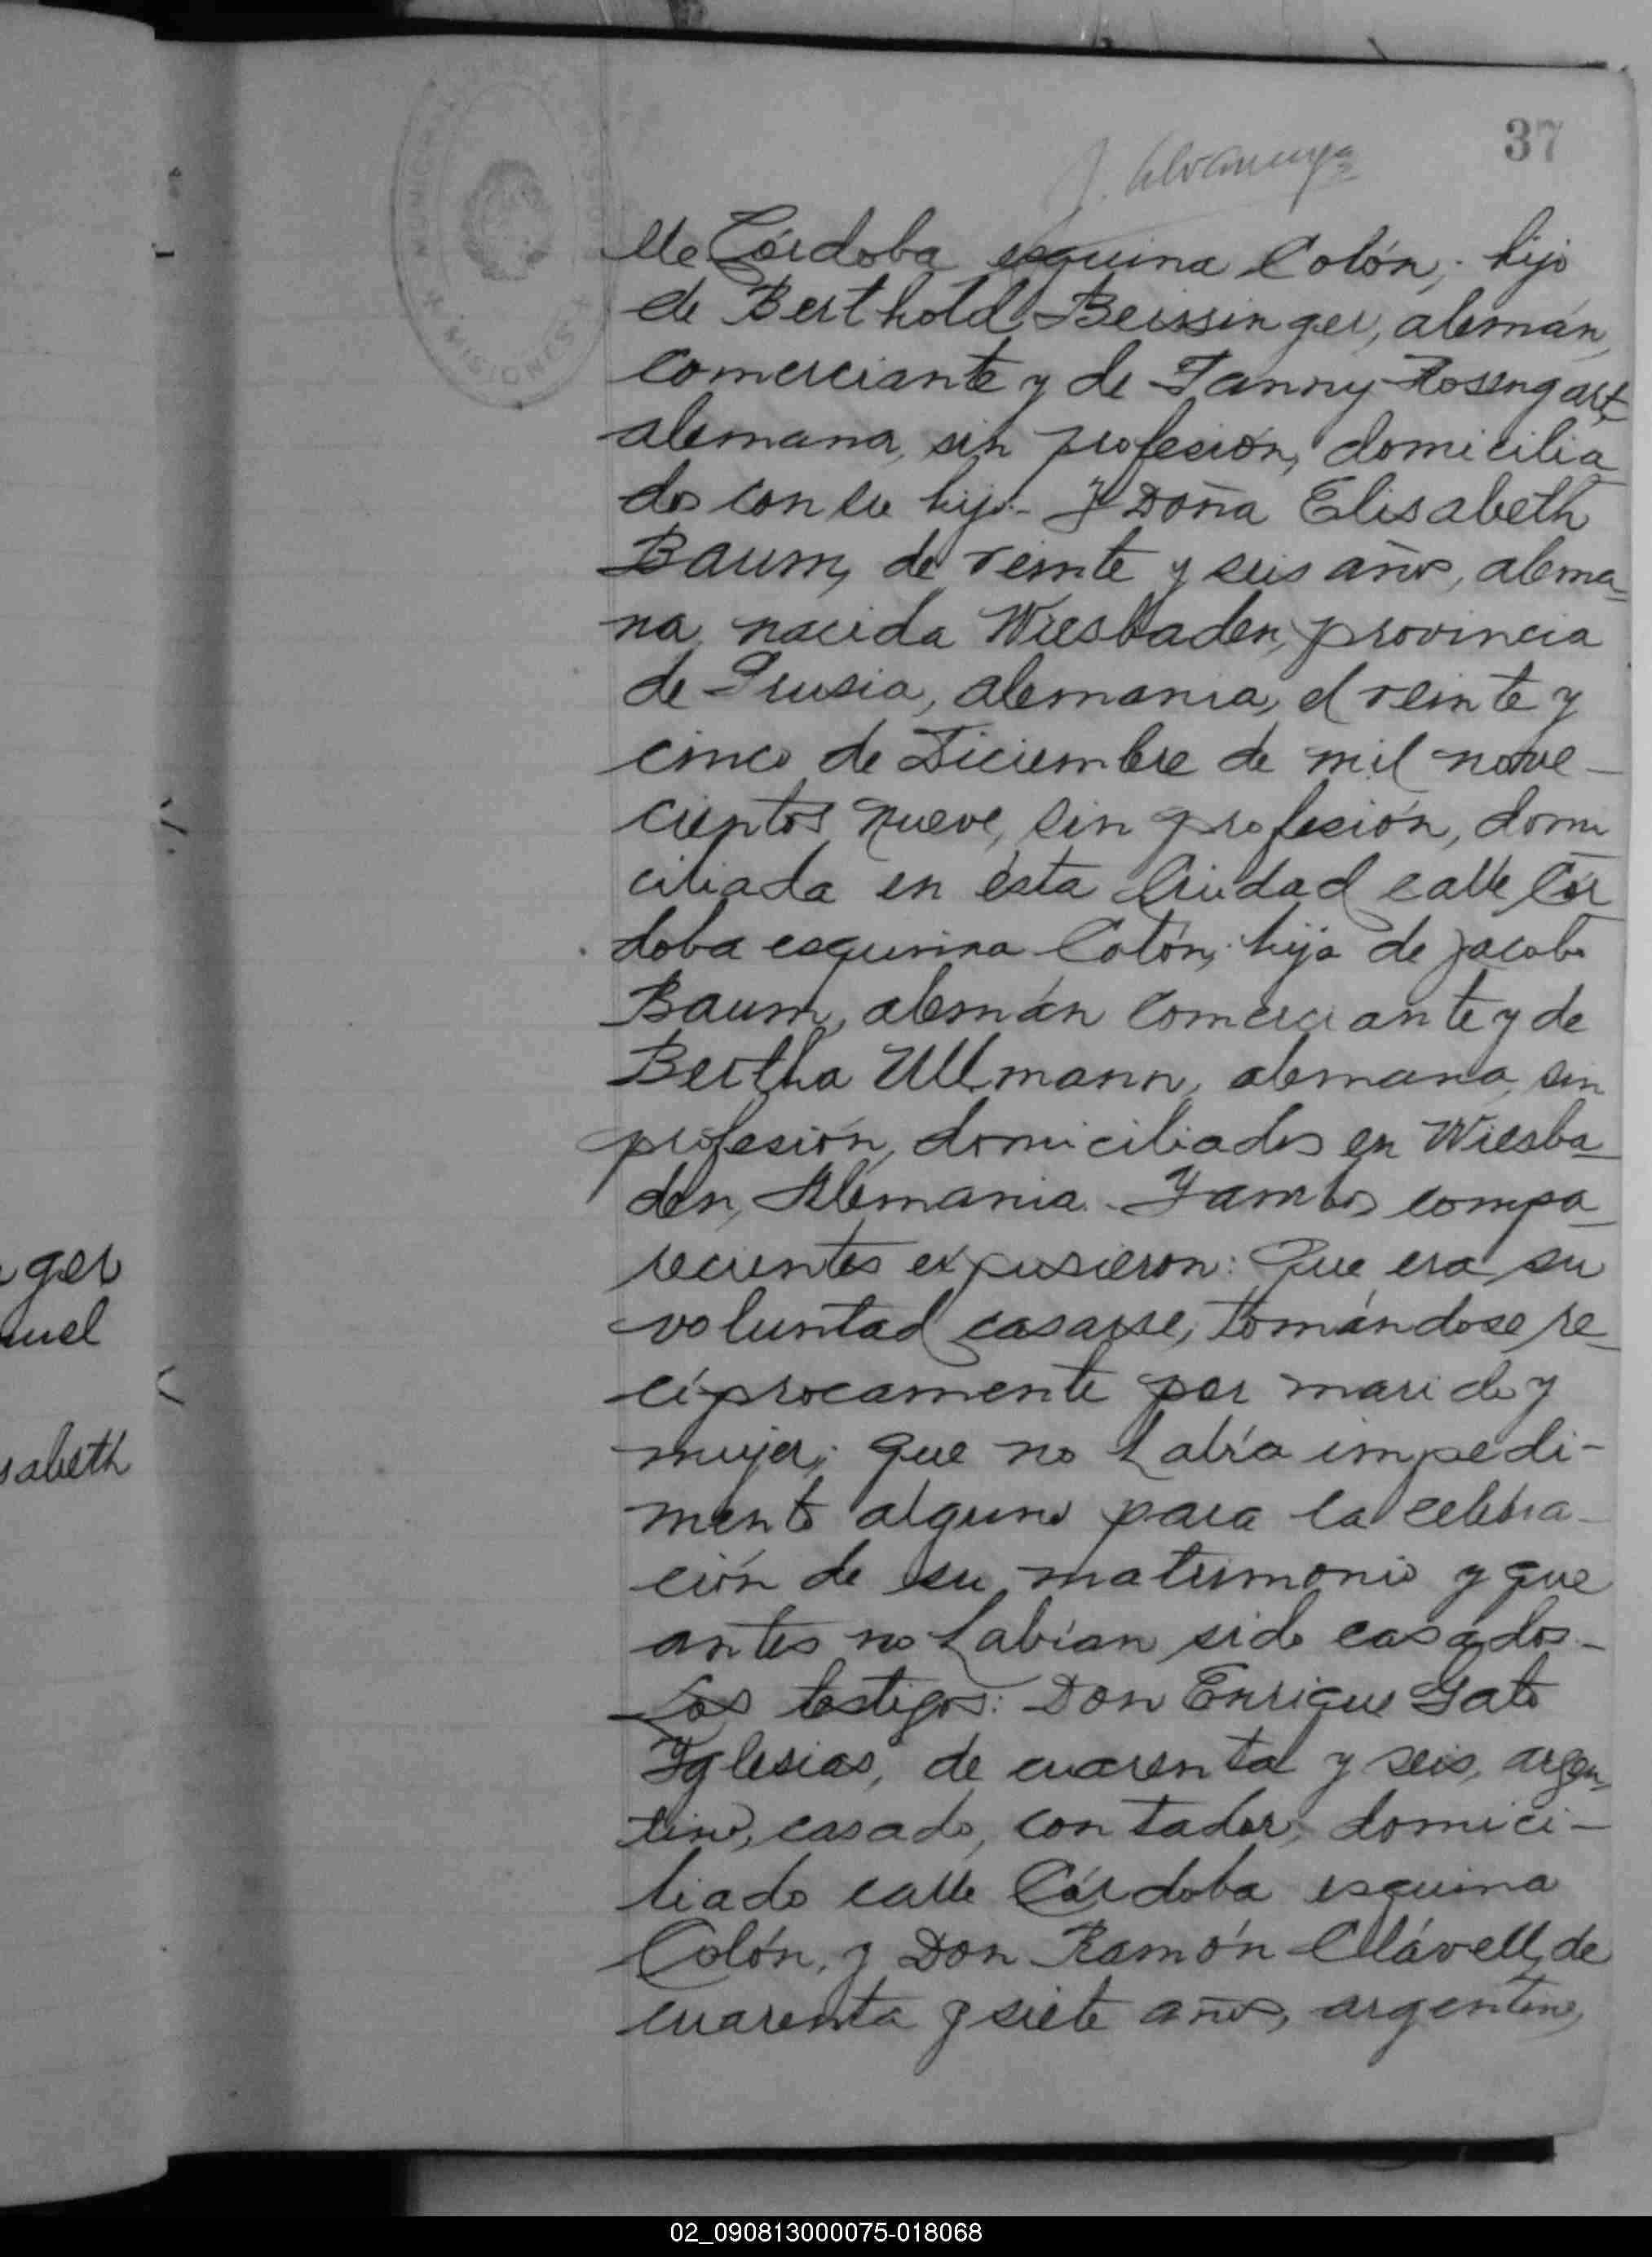 37
lle Córdoba esquina Colón; hijo
de Berthold Beissinger, alemán,
comerciante y de Fanny Rosengart,
alemana, sin profesión, domicilia
dos con su hijo.- Y Doña Elisabeth
Baum, de veinte y seis años, alema=
na, nacida Wiesbaden, provincia
de Prusia, Alemania, el veinte y
cinco de Diciembre de mil nove-
cientos nueve, sin profesión, domi
ciliada en ésta Ciudad calle Cór
doba esquina Colón; hija de Jacobo
Baum, alemán comerciante y de
Bertha Ullmann, alemana, sin
profesión, domiciliados en Wiesba
den, Alemania.- Y ambos compa
recientes expusieron: Que era su
voluntad casarse, tomándose re
cíprocamente por marido y
mujer; que no había impedi-
mento alguno para la celebra-
ción de su matrimonio y que
antes no habían sido casados.-
Los testigos: Don Enrique Gato
Yglesias, de cuarenta y seis, argen
tino, casado, contador, domici-
liado calle Córdoba esquina
Colón, y Don Ramón Clávell, de
cuarenta y siete años, argentino,
ger
uel
sabeth
MUNICIPALIDAD
MISIONES
02_090813000075-018068